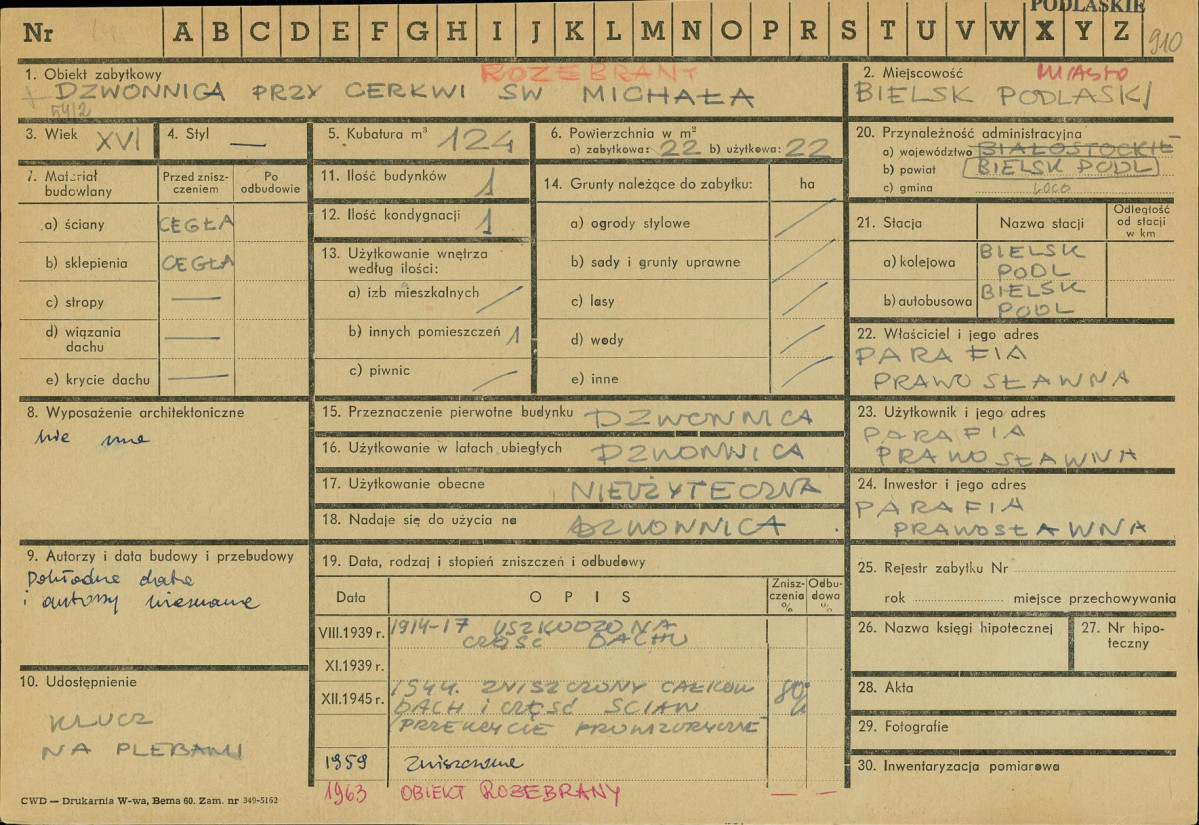 PODLASKIE
Nr A B C D E F G H I J K L M N O P R S T U V W X Y Z
910
1. Obiekt zabytkowy ROZEBRANY
DZWONNICA PRZY CERKWI SW MICHAŁA
54/2
2. Miejscowość MIASTO
BIELSK PODLASKI
3. Wiek XVI
4. Styl —
5. Kubatura m³ 124
6. Powierzchnia w m²
a) zabytkowa: 22 b) użytkowa: 22
7. Materiał budowlany
Przed zniszczeniem
Po odbudowie
a) ściany CEGŁA
b) sklepienia CEGŁA
c) stropy —
d) wiązania dachu —
e) krycie dachu —
8. Wyposażenie architektoniczne
nie ma
9. Autorzy i data budowy i przebudowy
Dokładna data
i autorzy nieznane
10. Udostępnienie
KLUCZ
NA PLEBANII
11. Ilość budynków 1
12. Ilość kondygnacji 1
13. Użytkowanie wnętrza
według ilości:
a) izb mieszkalnych /
b) innych pomieszczeń 1
c) piwnic /
14. Grunty należące do zabytku: ha
a) ogrody stylowe /
b) sady i grunty uprawne /
c) lasy /
d) wody /
e) inne /
15. Przeznaczenie pierwotne budynku DZWONNICA
16. Użytkowanie w latach ubiegłych DZWONNICA
17. Użytkowanie obecne NIEUŻYTECZNA
18. Nadaje się do użycia na DZWONNICA
19. Data, rodzaj i stopień zniszczeń i odbudowy
Data OPIS Zniszczenia % Odbudowa %
VIII.1939 r. 1914-17 USZKODZONA
CZĘŚĆ DACHU
XI.1939 r.
XII.1945 r. 1944. ZNISZCZONY CAŁKOW 80%
DACH I CZĘŚĆ ŚCIAN
PRZEKRYCIE PROWIZORYCZNE
1959 Zniszczona
1963 OBIEKT ROZEBRANY — —
20. Przynależność administracyjna
a) województwo BIAŁOSTOCKIE
b) powiat BIELSK PODL
c) gmina loco
21. Stacja Nazwa stacji Odległość od stacji w km
a) kolejowa BIELSK
PODL
b) autobusowa BIELSK
PODL
22. Właściciel i jego adres
PARAFIA
PRAWOSŁAWNA
23. Użytkownik i jego adres
PARAFIA
PRAWOSŁAWNA
24. Inwestor i jego adres
PARAFIA
PRAWOSŁAWNA
25. Rejestr zabytku Nr
rok miejsce przechowywania
26. Nazwa księgi hipotecznej
27. Nr hipoteczny
28. Akta
29. Fotografie
30. Inwentaryzacja pomiarowa
CWD — Drukarnia W-wa, Bema 60. Zam. nr 349-5162